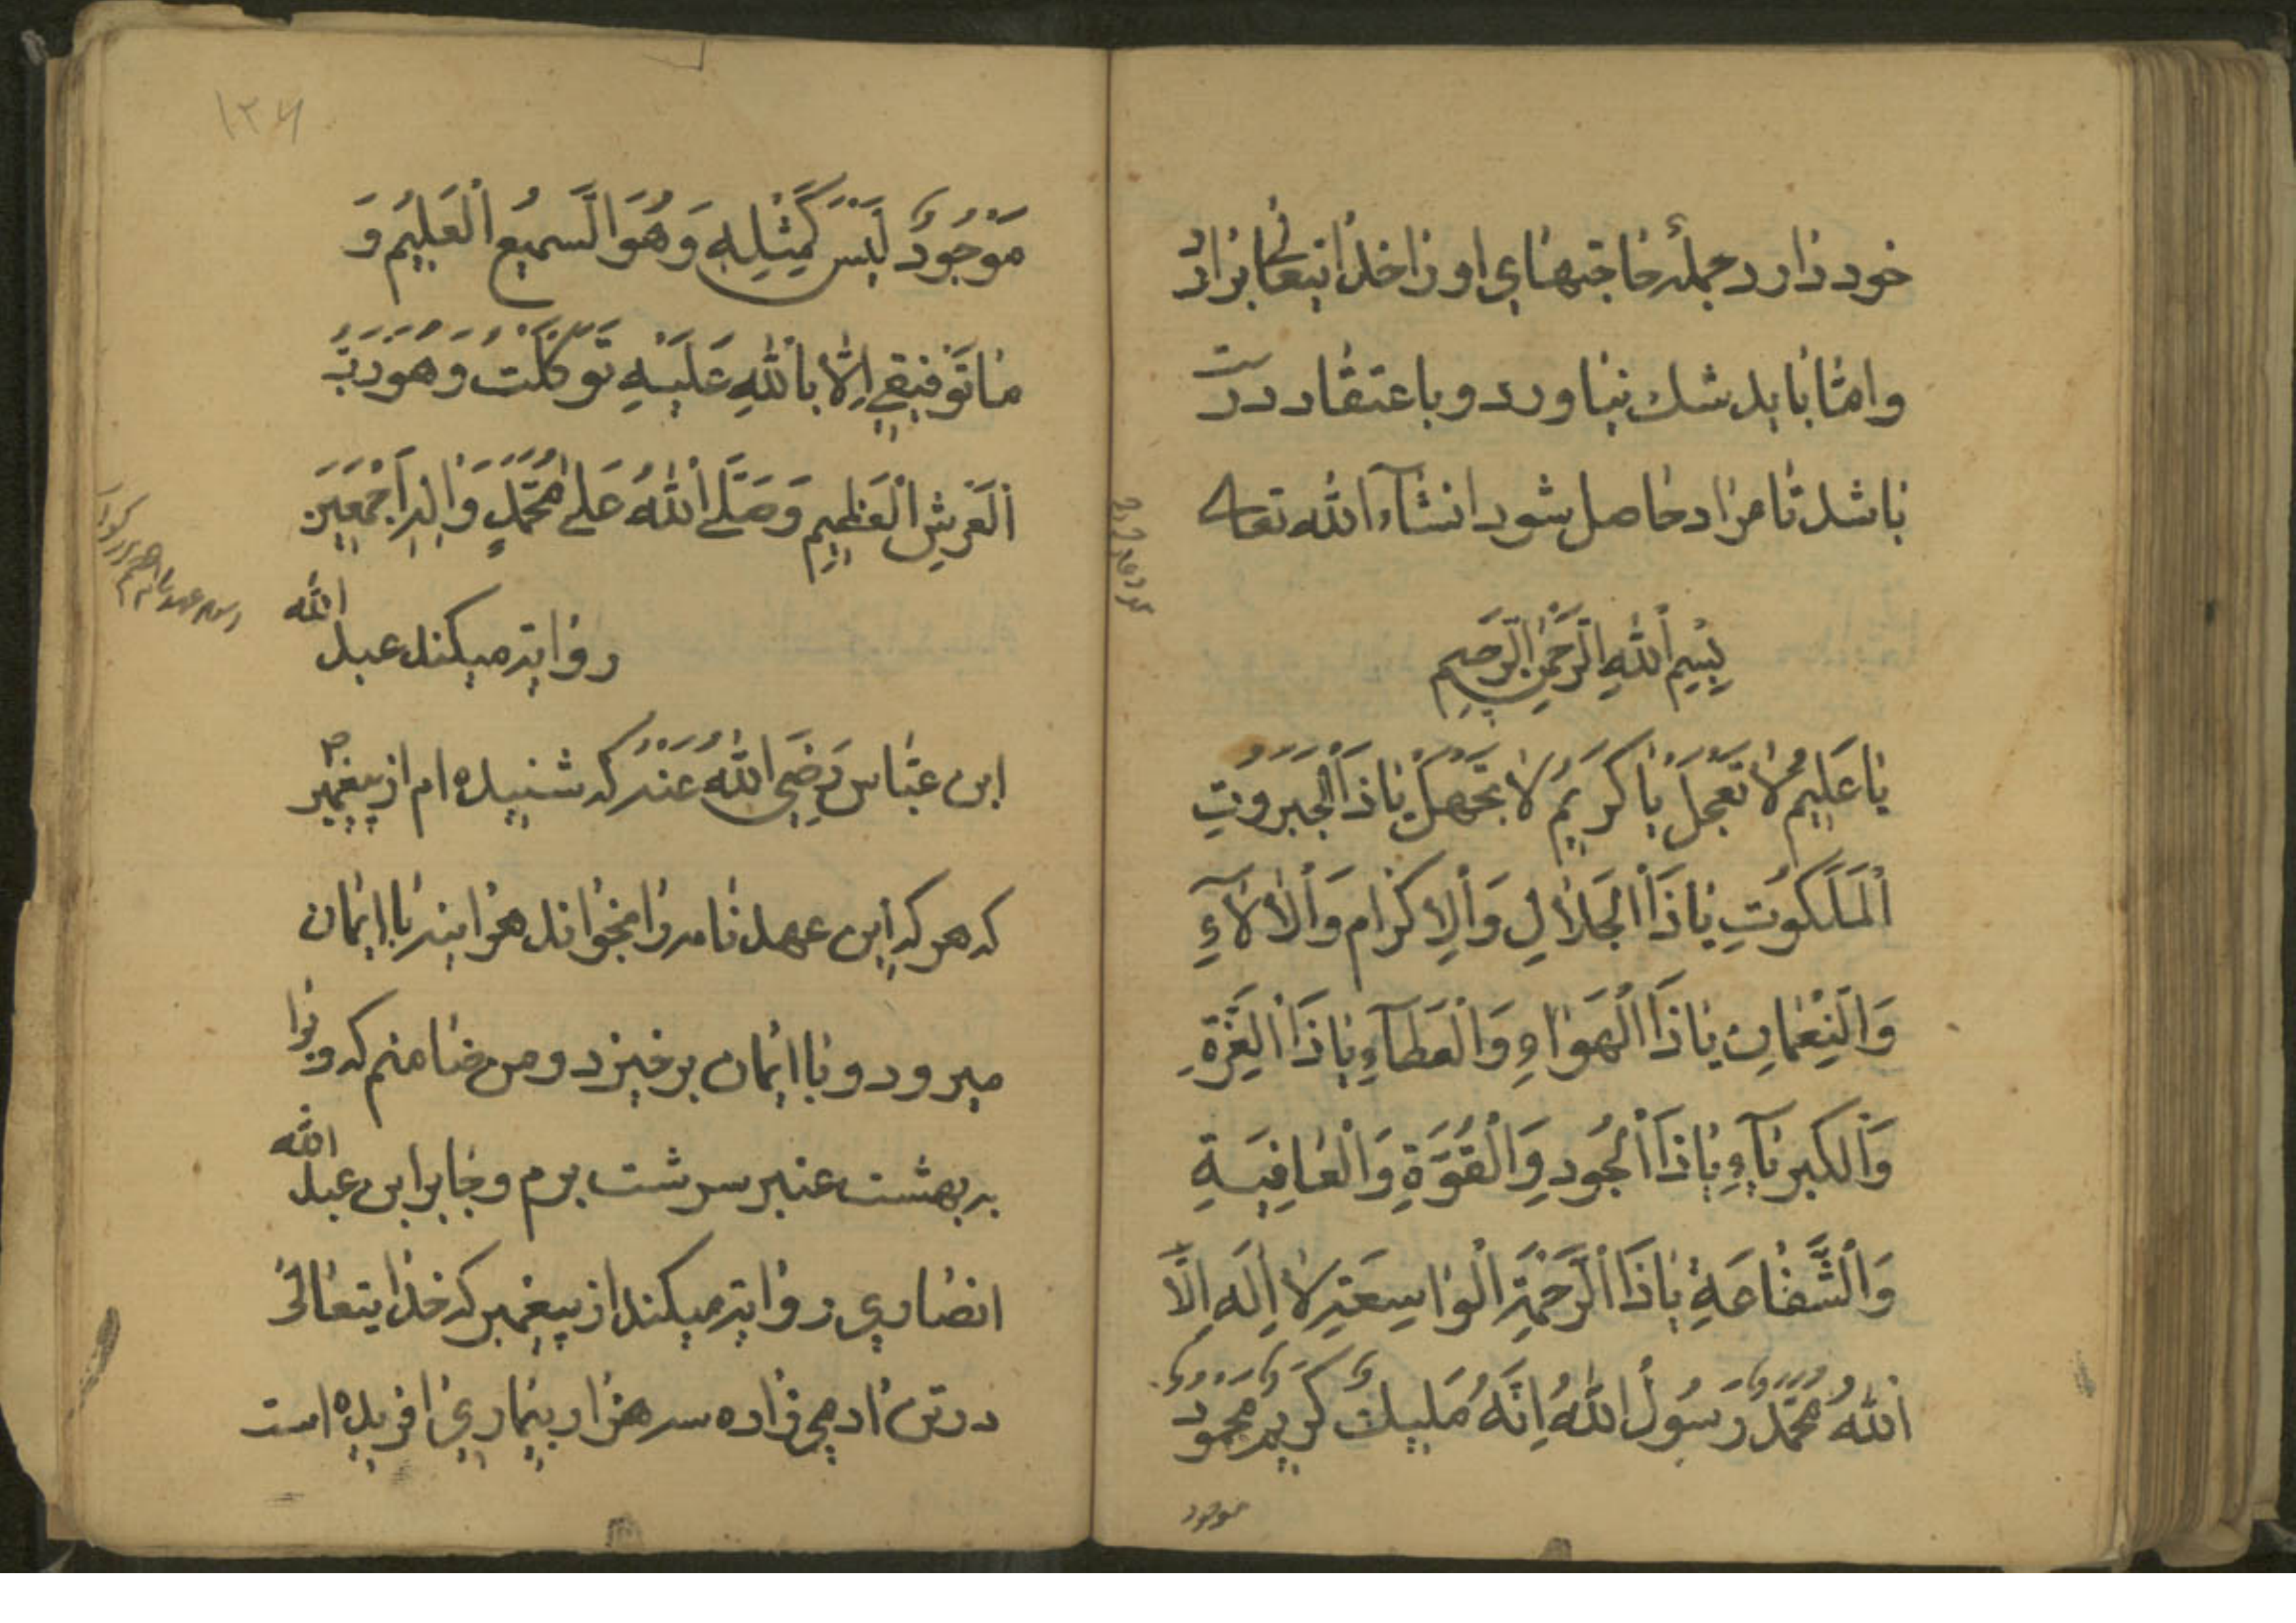 خود دارد جملهٔ حاجتهای او را خدایتعالی براد
و امّا باید شک نیاورد و باعتقاد درست
باشد تا مراد حاصل شود انشآء الله تعالی
بِسْمِ اللّٰهِ الرَّحْمٰنِ الرَّحِيمِ
يٰا عَلِيمُ لٰا تَعْجَلْ يٰا كَرِيمُ لٰا تَجْهَلْ يٰا ذَا الْجَبَرُوتِ
الْمَلَكُوتِ يٰا ذَا الْجَلٰالِ وَالْاِكْرٰامِ وَالْاٰلٰآءِ
وَالنِّعْمٰانِ يٰا ذَا الْهَوٰاءِ وَالْعَطٰآءِ يٰا ذَا الْعِزَّةِ
وَالْكِبْرِيٰآءِ يٰا ذَا الْجُودِ وَالْقُوَّةِ وَالْعٰافِيَةِ
وَالشَّفٰاعَةِ يٰا ذَا الرَّحْمَةِ الْوٰاسِعَةِ لٰا اِلٰهَ اِلَّا
اللّٰهُ مُحَمَّدٌ رَسُولُ اللّٰهُ اِنَّهُ مَلِيكٌ كَرِيمٌ مَجُودٌ
موجود
۱۲۶
مَوْجُودٌ لَيْسَ كَمِثْلِهِ وَهُوَ السَّمِيعُ الْعَلِيمُ وَ
مٰا تَوْفِيقِي اِلّٰا بِاللّٰهِ عَلَيْهِ تَوَكَّلْتُ وَهُوَ رَبُّ
الْعَرْشِ الْعَظِيمِ وَصَلَّى اللّٰهُ عَلٰى مُحَمَّدٍ وَاٰلِهِ اَجْمَعِينَ
روایت میکند عبد الله
ابن عبّاس رَضِيَ اللّٰهُ عَنْهُ که شنیده ام از پیغمبر ص
که هر که این عهد نامه را بخواند هر اینه با ایمان
میرود و با ایمان برخیزد و من ضامنم که ویرا
به بهشت عنبر سرشت برم و جابر ابن عبد الله
انصاری روایت میکند از پیغمبر که خدایتعالی
در تن ادمی زاده سه هزار بیماری افریده است